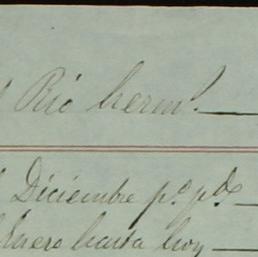 Rio herm.
Diciembre p.º p.do
Enero hasta hoy